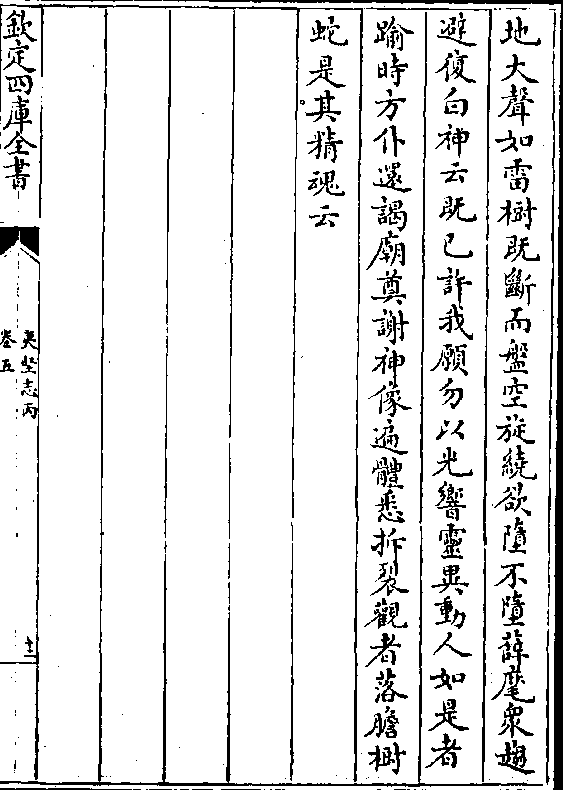 地大聲如雷樹既斷而盤空旋繞欲墮不墮薛麾衆趨
避復白神云既已許我願勿以光響靈異動人如是者
踰時方仆還謁廟奠謝神像遍體悉拆裂觀者落膽樹
蛇是其精魂云
欽定四庫全書
夷堅志丙
卷五
十三